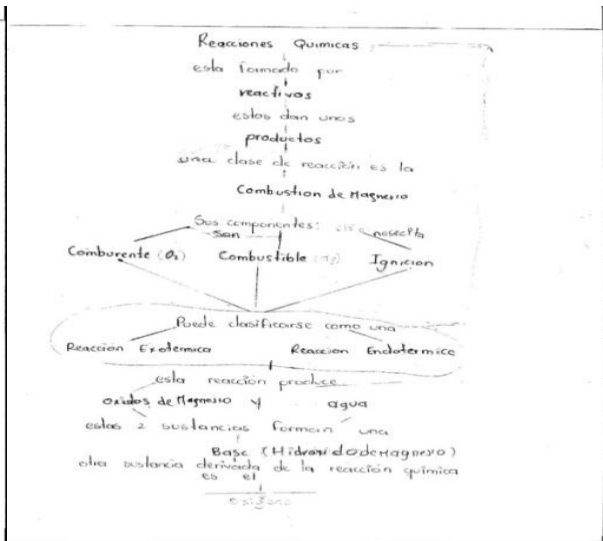 Reacciones Quimicas
esta formado por
reactivos
estos dan unos
productos
una clase de reacción es la
Combustion de Magnesio
Sus componentes:
son necesita
Comburente (O₂) Combustible (Mg) Ignicion
Puede clasificarse como una
Reacción Exotermica Reaccion Endotermica
esta reacción produce
oxidos de Magnesio y agua
estas 2 sustancias forman una
Base (Hidroxido de Magnesio)
otra sustancia derivada de la reacción química
es el